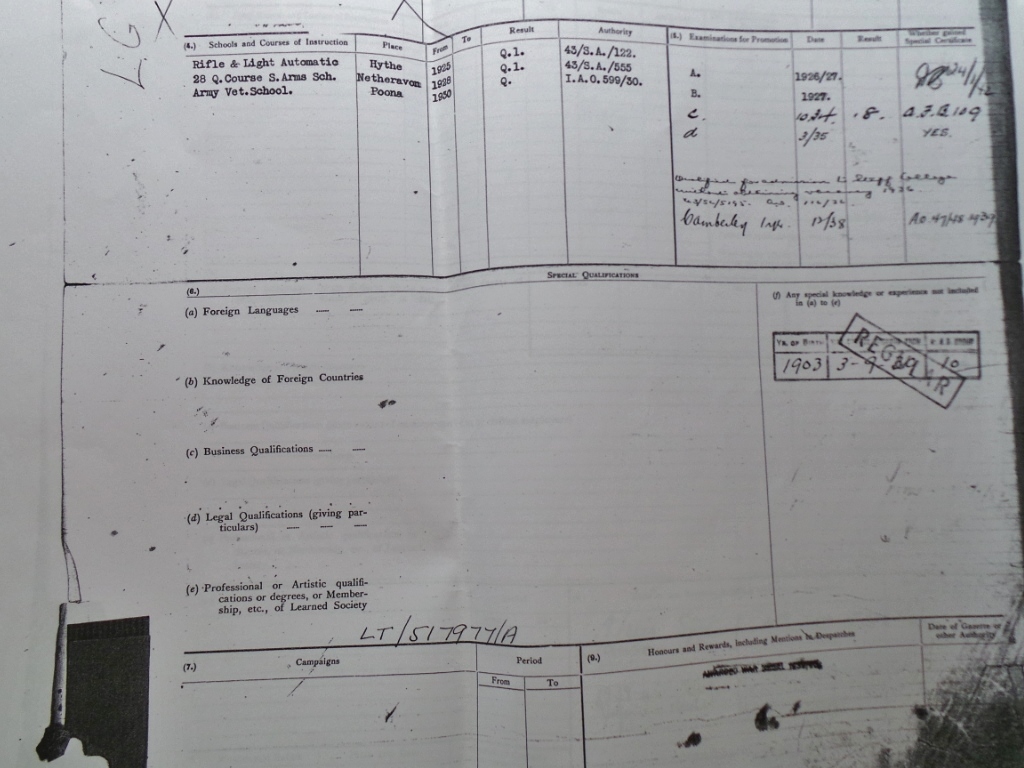 L. G X
(4.) Schools and Courses of Instruction Place From To Result Authority
Rifle & Light Automatic Hythe 1925 Q.1. 43/S.A./122.
28 Q.Course S.Arms Sch. Netheravon 1928 Q.1. 43/S.A./555
Army Vet.School. Poona 1930 Q. I.A.O.599/30.
(5.) Examinations for Promotion Date Result Whether gained Special Certificate
A. 1926/27.
B. 1927.
C. .8. A.F.B. 109
d 3/35 YES.
College
Camberley 12/38
SPECIAL QUALIFICATIONS
(6.)
(a) Foreign Languages
(b) Knowledge of Foreign Countries
(c) Business Qualifications
(d) Legal Qualifications (giving par-
ticulars)
(e) Professional or Artistic qualifi-
cations or degrees, or Member-
ship, etc., of Learned Society
(f) Any special knowledge or experience not included
in (a) to (e)
YR. OF BIRTH
1903 3-9-39 10
REGULAR
LT/517977/A
(7.) Campaigns Period
From To
Honours and Rewards, including Mentions in Despatches
Date of Gazette or
other Authority